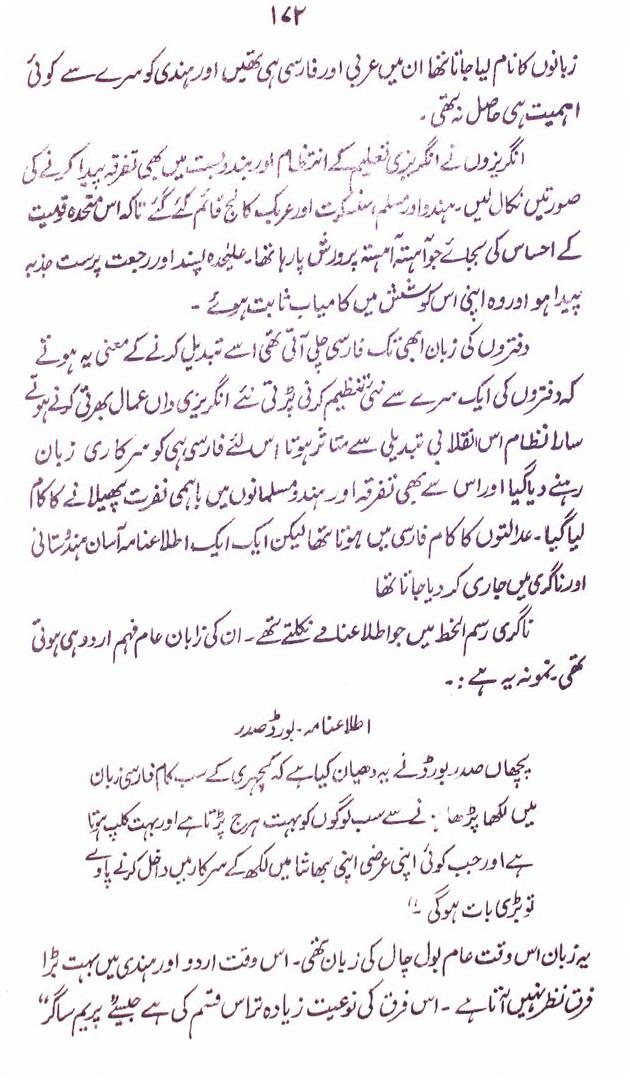 ۱۷۲
زبانوں کا نام لیا جاتا تھا ان میں عربی اور فارسی ہی تھیں اور ہندی کو سرے سے کوئی
اہمیت ہی حاصل نہ تھی ۔
انگریزوں نے انگریزی تعلیم کے انتظام اور بندوبست میں بھی تفرقہ پیدا کرنے کی
صورتیں نکال لیں ۔ ہندو اور مسلم، سنسکرت اور عربک کالج قائم کئے گئے تاکہ اس متحدہ قومیت
کے احساس کی بجائے جو آہستہ آہستہ پرورش پا رہا تھا ۔ علیٰحدہ پسند اور رجعت پرست جذبہ
پیدا ہو اور وہ اپنی اس کوشش میں کامیاب ثابت ہوئے ۔
دفتروں کی زبان ابھی تک فارسی چلی آتی تھی اسے تبدیل کرنے کے معنی یہ ہوتے
کہ دفتروں کی ایک سرے سے نئی تنظیم کرنی پڑتی نئے انگریزی داں عمال بھرتی کرنے ہوتے
سارا نظام اس انقلابی تبدیلی سے متاثر ہوتا اس لئے فارسی ہی کو سرکاری زبان
رہنے دیا گیا اور اس سے بھی تفرقہ اور ہندو مسلمانوں میں باہمی نفرت پھیلانے کا کام
لیا گیا ۔ عدالتوں کا کام فارسی میں ہوتا تھا لیکن ایک ایک اطلاعنامہ آسان ہندوستانی
اور ناگری میں جاری کر دیا جاتا تھا
ناگری رسم الخط میں جو اطلاعنامے نکلتے تھے ۔ ان کی زبان عام فہم اردو ہی ہوتی
تھی نمونہ یہ ہے :۔
اطلاعنامہ ۔ بورڈ صدر
پچھاں صدر بورڈ نے یہ دھیان کیا ہے کہ کچہری کے سب کام فارسی زبان
میں لکھا پڑھا نے سے سب لوگوں کو بہت ہرج پڑتا ہے اور بہت کلپ ہوتا
ہے اور جب کوئی اپنی عرضی اپنی بھاشا میں لکھ کے سرکار میں داخل کرنے پاوے
تو بڑی بات ہوگی ۔"
یہ زبان اس وقت عام بول چال کی زبان تھی ۔ اس وقت اردو اور ہندی میں بہت بڑا
فرق نظر نہیں آتا ہے ۔ اس فرق کی نوعیت زیادہ تر اس قسم کی ہے جیسے "پریم ساگر"